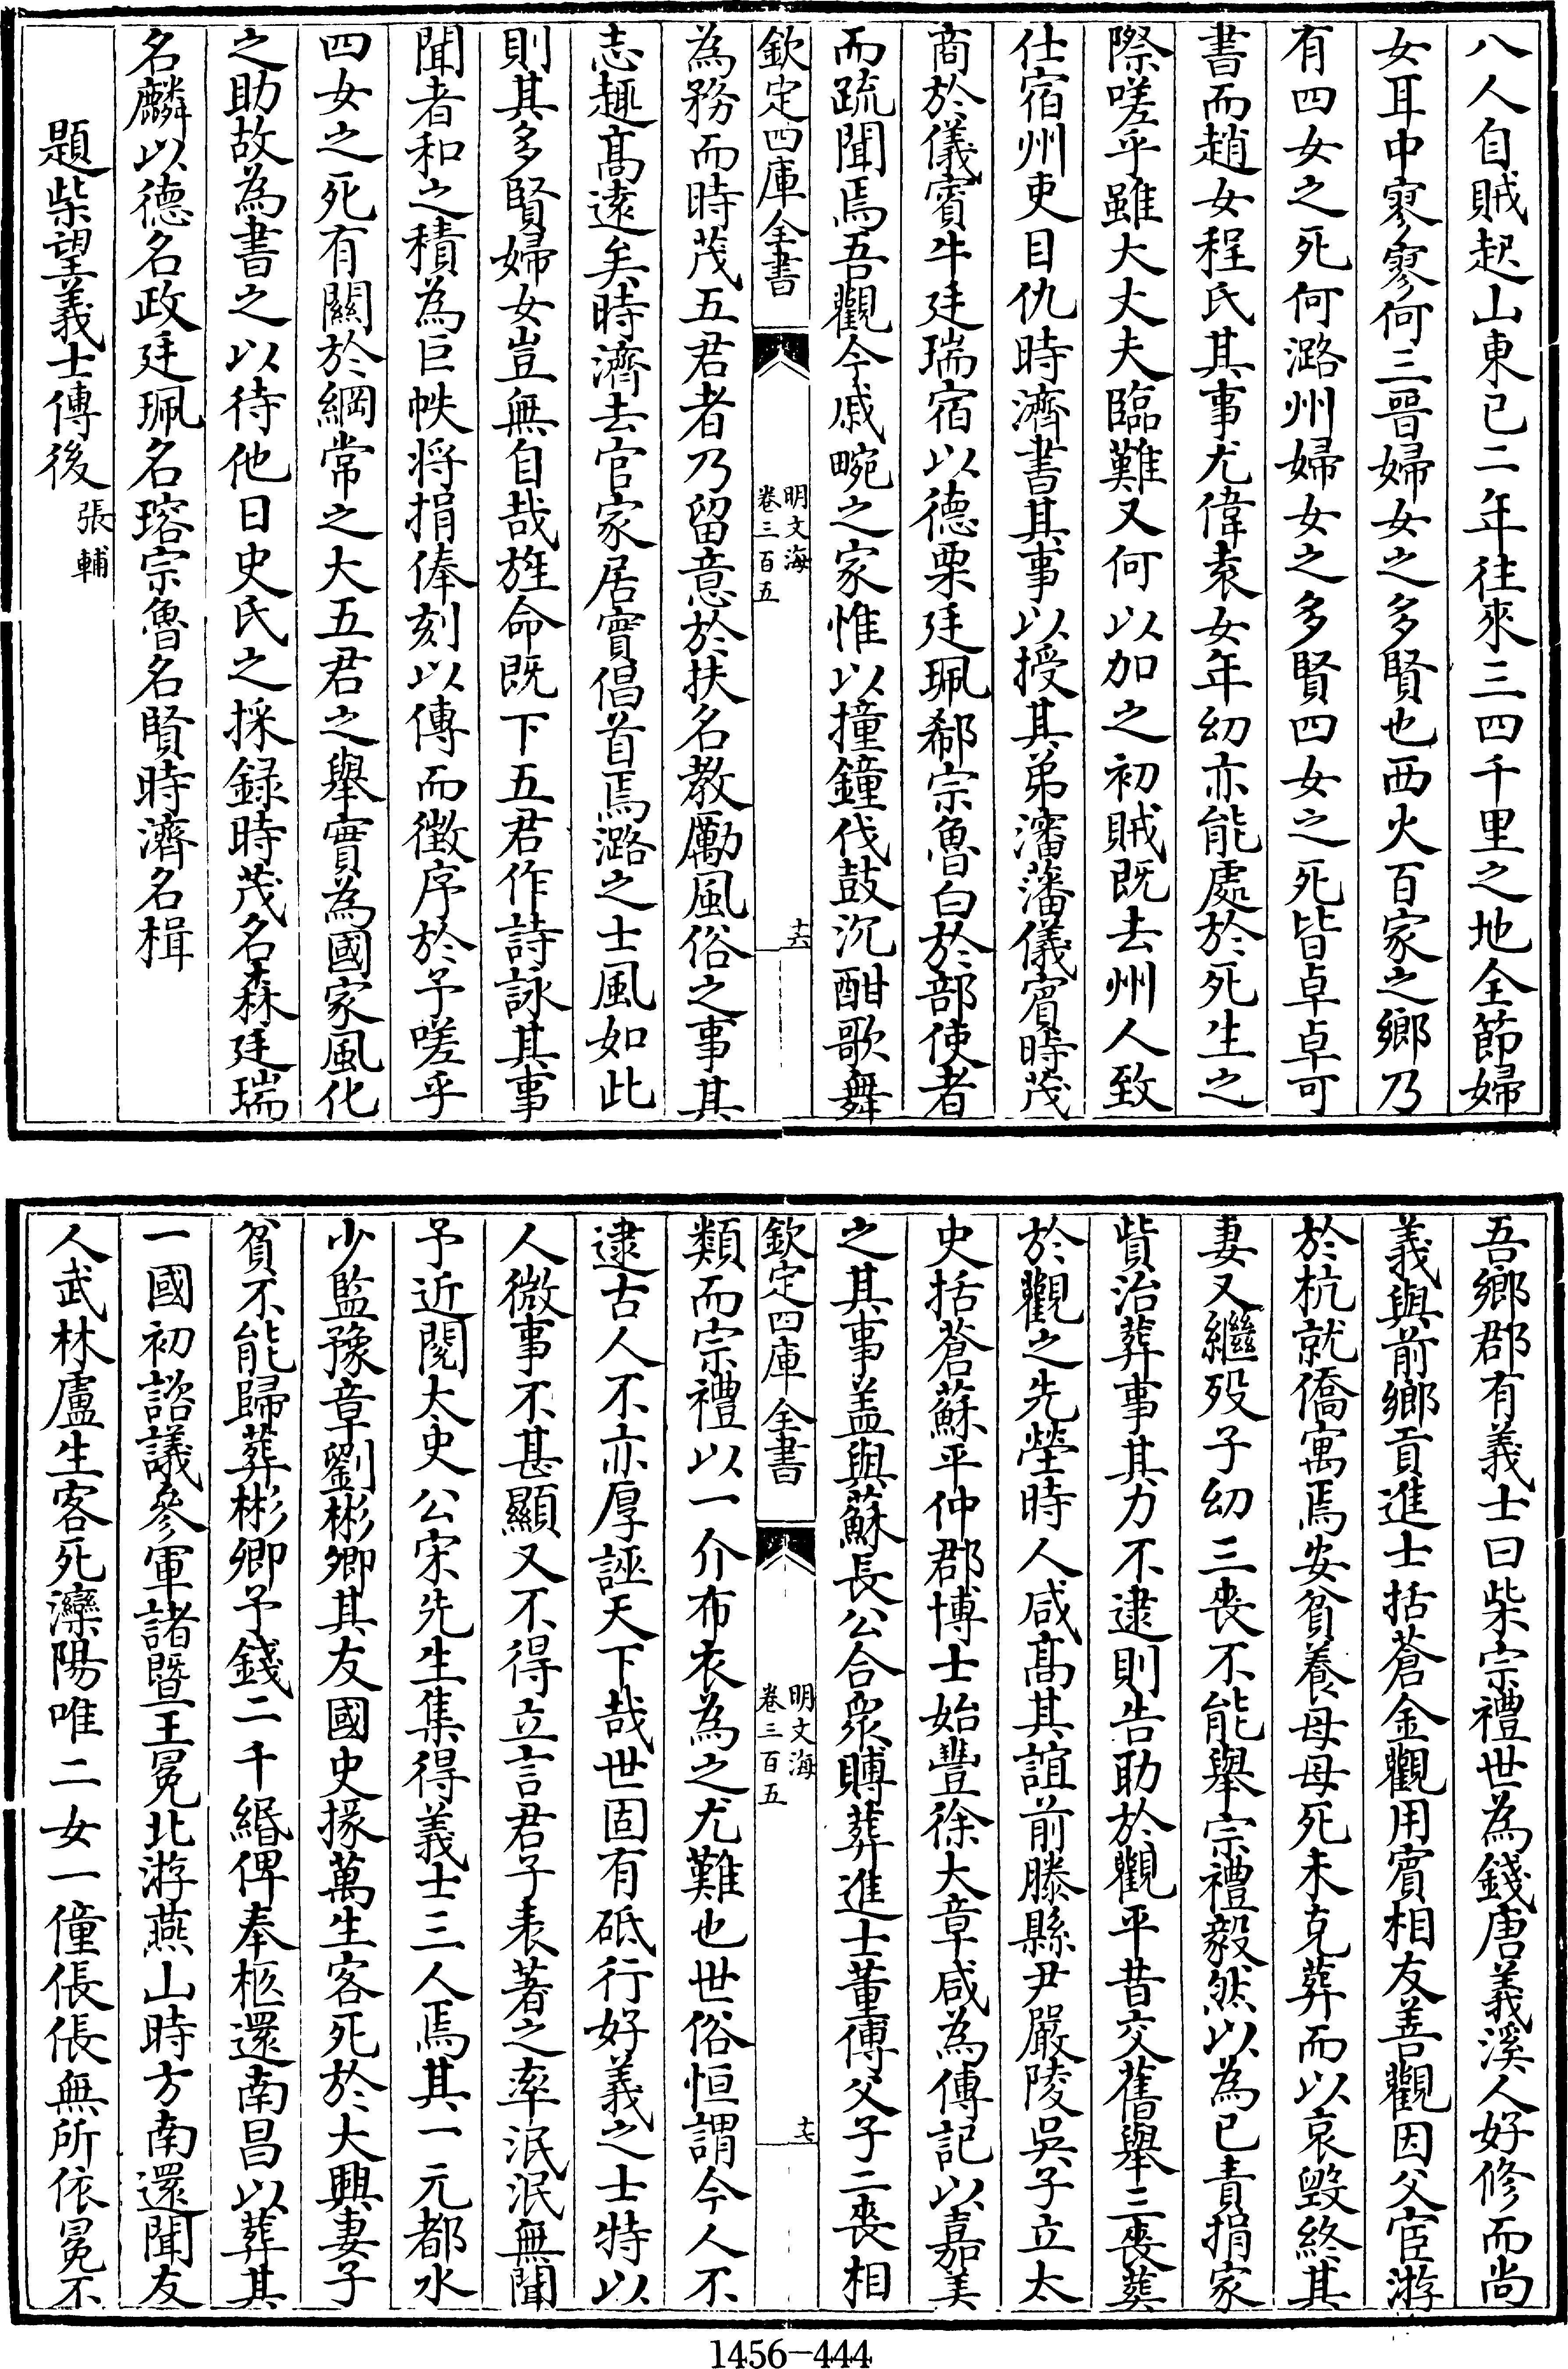 八人自賊起山東已二年往來三四千里之地全節婦
女耳中寥寥何三晉婦女之多賢也西火百家之鄉乃
有四女之死何潞州婦女之多賢四女之死皆卓卓可
書而趙女程氏其事尤偉袁女年幼亦能處於死生之
際嗟乎雖大丈夫臨難又何以加之初賊既去州人致
仕宿州吏目仇時濟書其事以授其弟瀋藩儀賓時茂
商於儀賓牛廷瑞宿以德栗廷珮郗宗魯白於部使者
而疏聞焉吾觀今戚畹之家惟以撞鐘伐鼓沉酣歌舞
欽定四庫全書
明文海
卷三百五
十六
為務而時茂五君者乃留意於扶名教勵風俗之事其
志趣髙遠矣時濟去官家居實倡首焉潞之士風如此
則其多賢婦女豈無自哉旌命既下五君作詩詠其事
聞者和之積為巨帙将捐俸刻以傳而徵序於予嗟乎
四女之死有關於綱常之大五君之舉實為國家風化
之助故為書之以待他日史氏之採録時茂名森廷瑞
名麟以德名政廷珮名瑢宗魯名賢時濟名楫
題柴望義士傳後
張輔
吾鄉郡有義士曰柴宗禮世為錢唐義溪人好修而尚
義與前鄉貢進士括蒼金觀用賓相友善觀因父宦游
於杭就僑寓焉安貧養母母死未克葬而以哀毀終其
妻又繼歿子幼三喪不能舉宗禮毅然以為已責捐家
貲治葬事其力不逮則告助於觀平昔交舊舉三喪葬
於觀之先塋時人咸髙其誼前滕縣尹嚴陵吳子立太
史括蒼蘇平仲郡博士始豐徐大章咸為傳記以嘉美
之其事盖與蘇長公合衆賻葬進士董傳父子二喪相
欽定四庫全書
明文海
卷三百五
十七
類而宗禮以一介布衣為之尤難也世俗恒謂今人不
逮古人不亦厚誣天下哉世固有砥行好義之士特以
人微事不甚顯又不得立言君子表著之率泯泯無聞
予近閱大史公宋先生集得義士三人焉其一元都水
少監豫章劉彬卿其友國史掾萬生客死於大興妻子
貧不能歸葬彬卿予錢二千緡俾奉柩還南昌以葬其
一國初諮議參軍諸暨王冕北游燕山時方南還聞友
人武林盧生客死灤陽唯二女一僮倀倀無所依冕不
1456-444